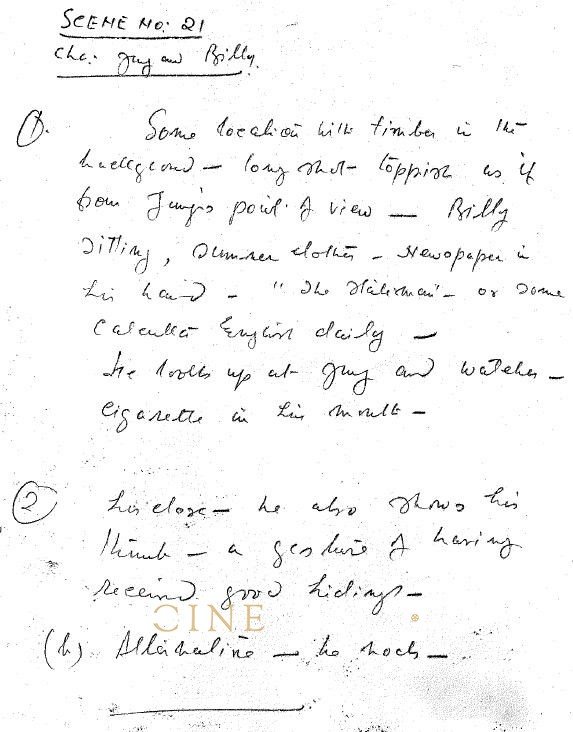 SCENE NO: 21
Cha: Jung and Billy.
1. Some location with timber in the
background — long shot - toppish as if
from Jung's point of view — Billy
sitting, summer clothes - Newspaper in
his hand - "The Statesman" - or some
Calcutta English daily —
He looks up at Jung and watches —
Cigarette in his mouth —
2 his close — he also shows his
thumb — a gesture of having
received good tidings —
CINE
(b) Alternative — he nods —